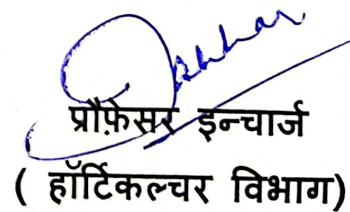 प्रौफ़ेसर इन्चार्ज
( हॉर्टिकल्चर विभाग)